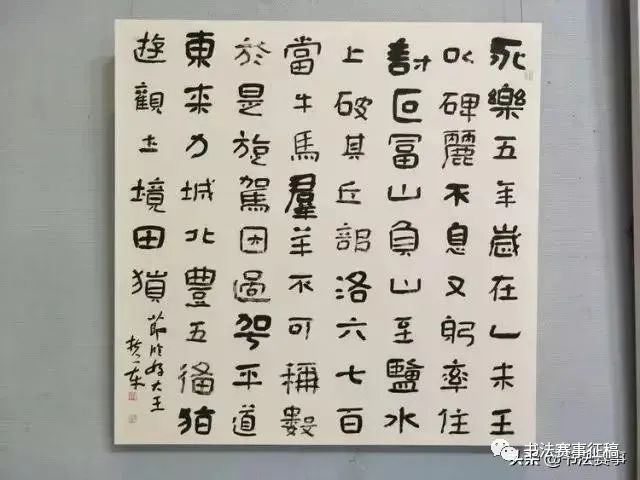 永樂五年歲在乙未王
以碑麗不息又躬率住
討叵富山負山至鹽水
上破其丘部洛六七百
當牛馬羣羊不可稱數
於是旋駕因過平道
東来力城北豐五備猶
遊觀土境田獵
節臨好大王
书法赛事征稿
头条 @书法赛事